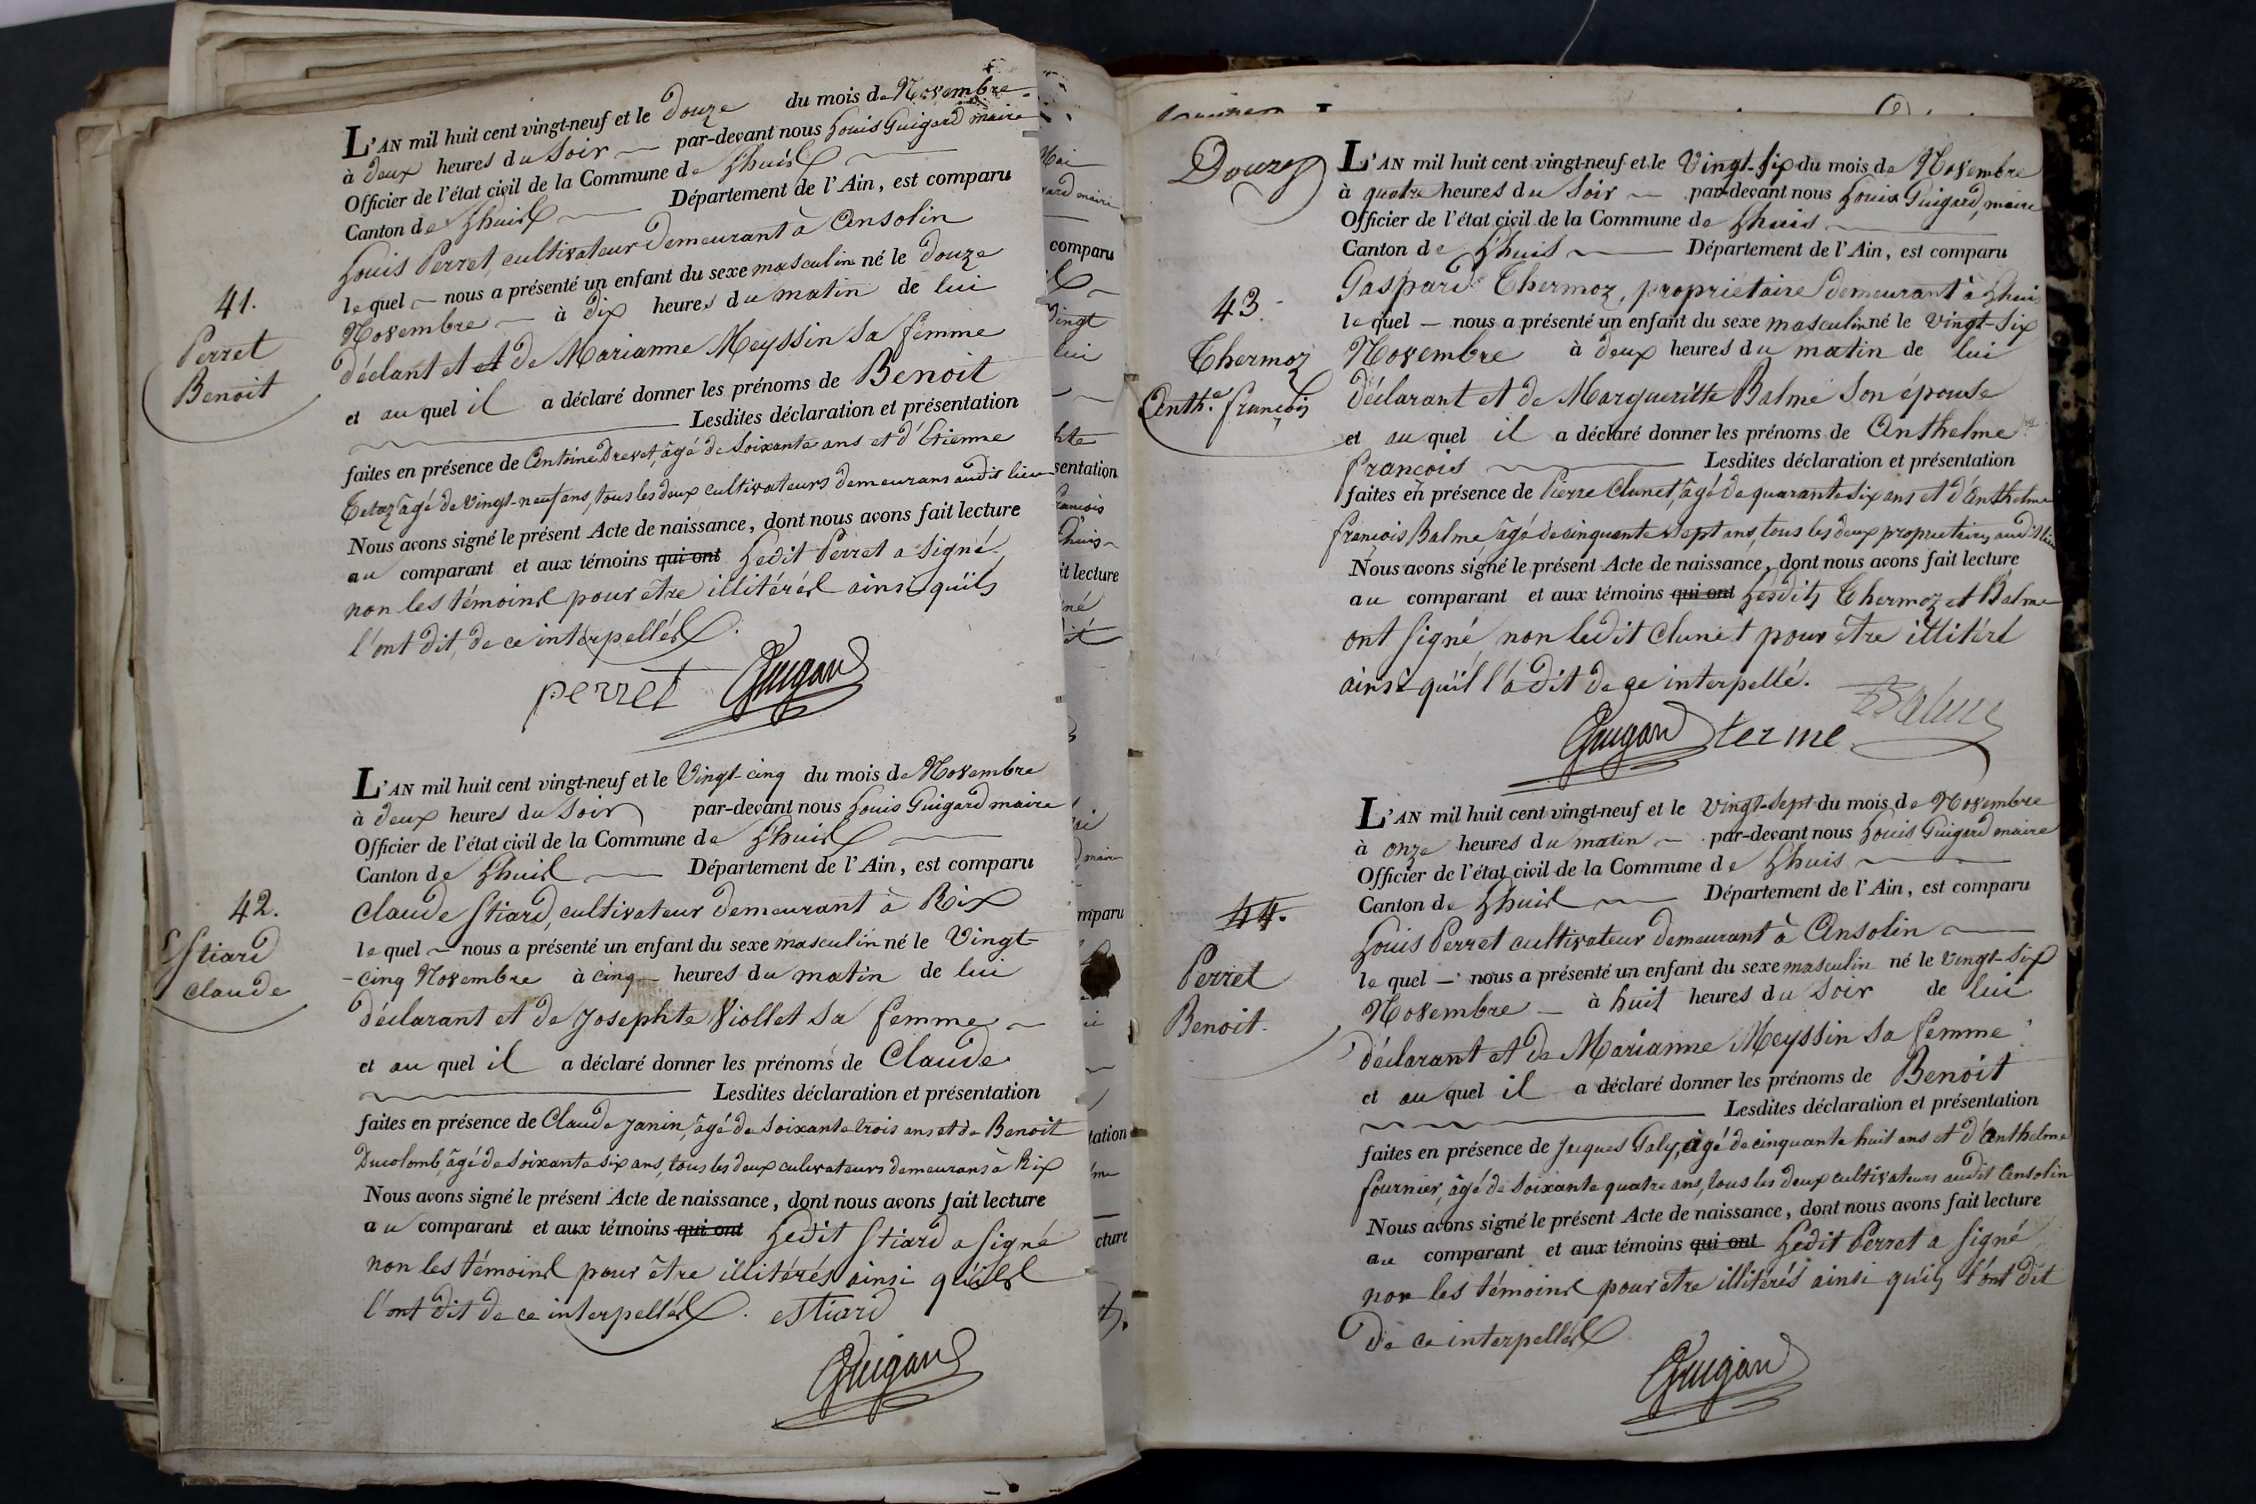 L'AN mil huit cent vingt-neuf et le douze du mois de Novembre
à deux heures du Soir par-devant nous Louis Guigard maire
Officier de l'état civil de la Commune de Lhuis
Canton de Lhuis Département de l'Ain, est comparu
Louis Perret, cultivateur demeurant à Ansolin
lequel nous a présenté un enfant du sexe masculin né le douze
Novembre à dix heures du matin de lui
41.
Perret
Benoit
déclarant et de Marianne Meyssin sa femme
et auquel il a déclaré donner les prénoms de Benoit
Lesdites déclaration et présentation
faites en présence de Antoine Drevet, âgé de soixante ans et d'Etienne
Tetaz âgé de vingt-neuf ans, tous les deux cultivateurs demeurans audit lieu
Nous avons signé le présent Acte de naissance, dont nous avons fait lecture
au comparant et aux témoins qui ont Ledit Perret a signé
non les témoins pour être illitérés ainsi qu'ils
l'ont dit, de ce interpellés.
perret Guigard
L'AN mil huit cent vingt-neuf et le Vingt-cinq du mois de Novembre
à deux heures du Soir par-devant nous Louis Guigard maire
Officier de l'état civil de la Commune de Lhuis
Canton de Lhuis Département de l'Ain, est comparu
42.
Stiard
Claude
Claude Stiard, cultivateur demeurant à Rix
lequel nous a présenté un enfant du sexe masculin né le Vingt-
-cinq Novembre à cinq heures du matin de lui
déclarant et de Josephte Viollet sa femme
et auquel il a déclaré donner les prénoms de Claude
Lesdites déclaration et présentation
faites en présence de Claude Janin, âgé de soixante trois ans et de Benoit
Ducolomb, âgé de soixante six ans, tous les deux culivateurs demeurans à Rix
Nous avons signé le présent Acte de naissance, dont nous avons fait lecture
au comparant et aux témoins qui ont Ledit Stiard a signé
non les témoins pour être illitérés ainsi qu'ils
l'ont dit de ce interpellés. estiard
Guigard
comparu
Vingt
lui
sentation
françois
Lhuis
it lecture
mparu
tation
cture
Douze
L'AN mil huit cent vingt-neuf et le Vingt-six du mois de Novembre
à quatre heures du Soir par-devant nous Louis Guigard, maire
Officier de l'état civil de la Commune de Lhuis
Canton de Lhuis Département de l'Ain, est comparu
43.
Thermoz
Anth.e françois
Gaspard Thermoz, propriétaire demeurant à Lhuis
lequel nous a présenté un enfant du sexe masculin né le vingt-six
Novembre à deux heures du matin de lui
déclarant et de Margueritte Balme son épouse
et auquel il a déclaré donner les prénoms de Anthelme
françois Lesdites déclaration et présentation
faites en présence de Pierre Clunet, âgé de quarante six ans et d'Anthelme
françois Balme âgé de cinquante sept ans, tous les deux propriétaires audit lieu
Nous avons signé le présent Acte de naissance, dont nous avons fait lecture
au comparant et aux témoins qui ont Lesdits Thermoz et Balme
ont signé non ledit Clunet pour être illitéré
ainsi qu'il l'a dit de ce interpellé.
Guigard terme Balme
L'AN mil huit cent vingt-neuf et le vingt-sept du mois de Novembre
à onze heures du matin par-devant nous Louis Guigard maire
Officier de l'état civil de la Commune de Lhuis
Canton de Lhuis Département de l'Ain, est comparu
44.
Perret
Benoit.
Louis Perret cultivateur demeurant à Ansolin
lequel nous a présenté un enfant du sexe masculin né le vingt-six
Novembre à huit heures du soir de lui
déclarant et de Marianne Meyssin sa femme
et auquel il a déclaré donner les prénoms de Benoit
Lesdites déclaration et présentation
faites en présence de Jacques Galy, âgé de cinquante huit ans et d'Anthelme
fournier, âgé de soixante quatre ans, tous les deux cultivateurs audit Ansolin
Nous avons signé le présent Acte de naissance, dont nous avons fait lecture
au comparant et aux témoins qui ont Ledit Perret a signé
non les témoins pour être illitérés ainsi qu'ils l'ont dit
de ce interpellés
Guigard